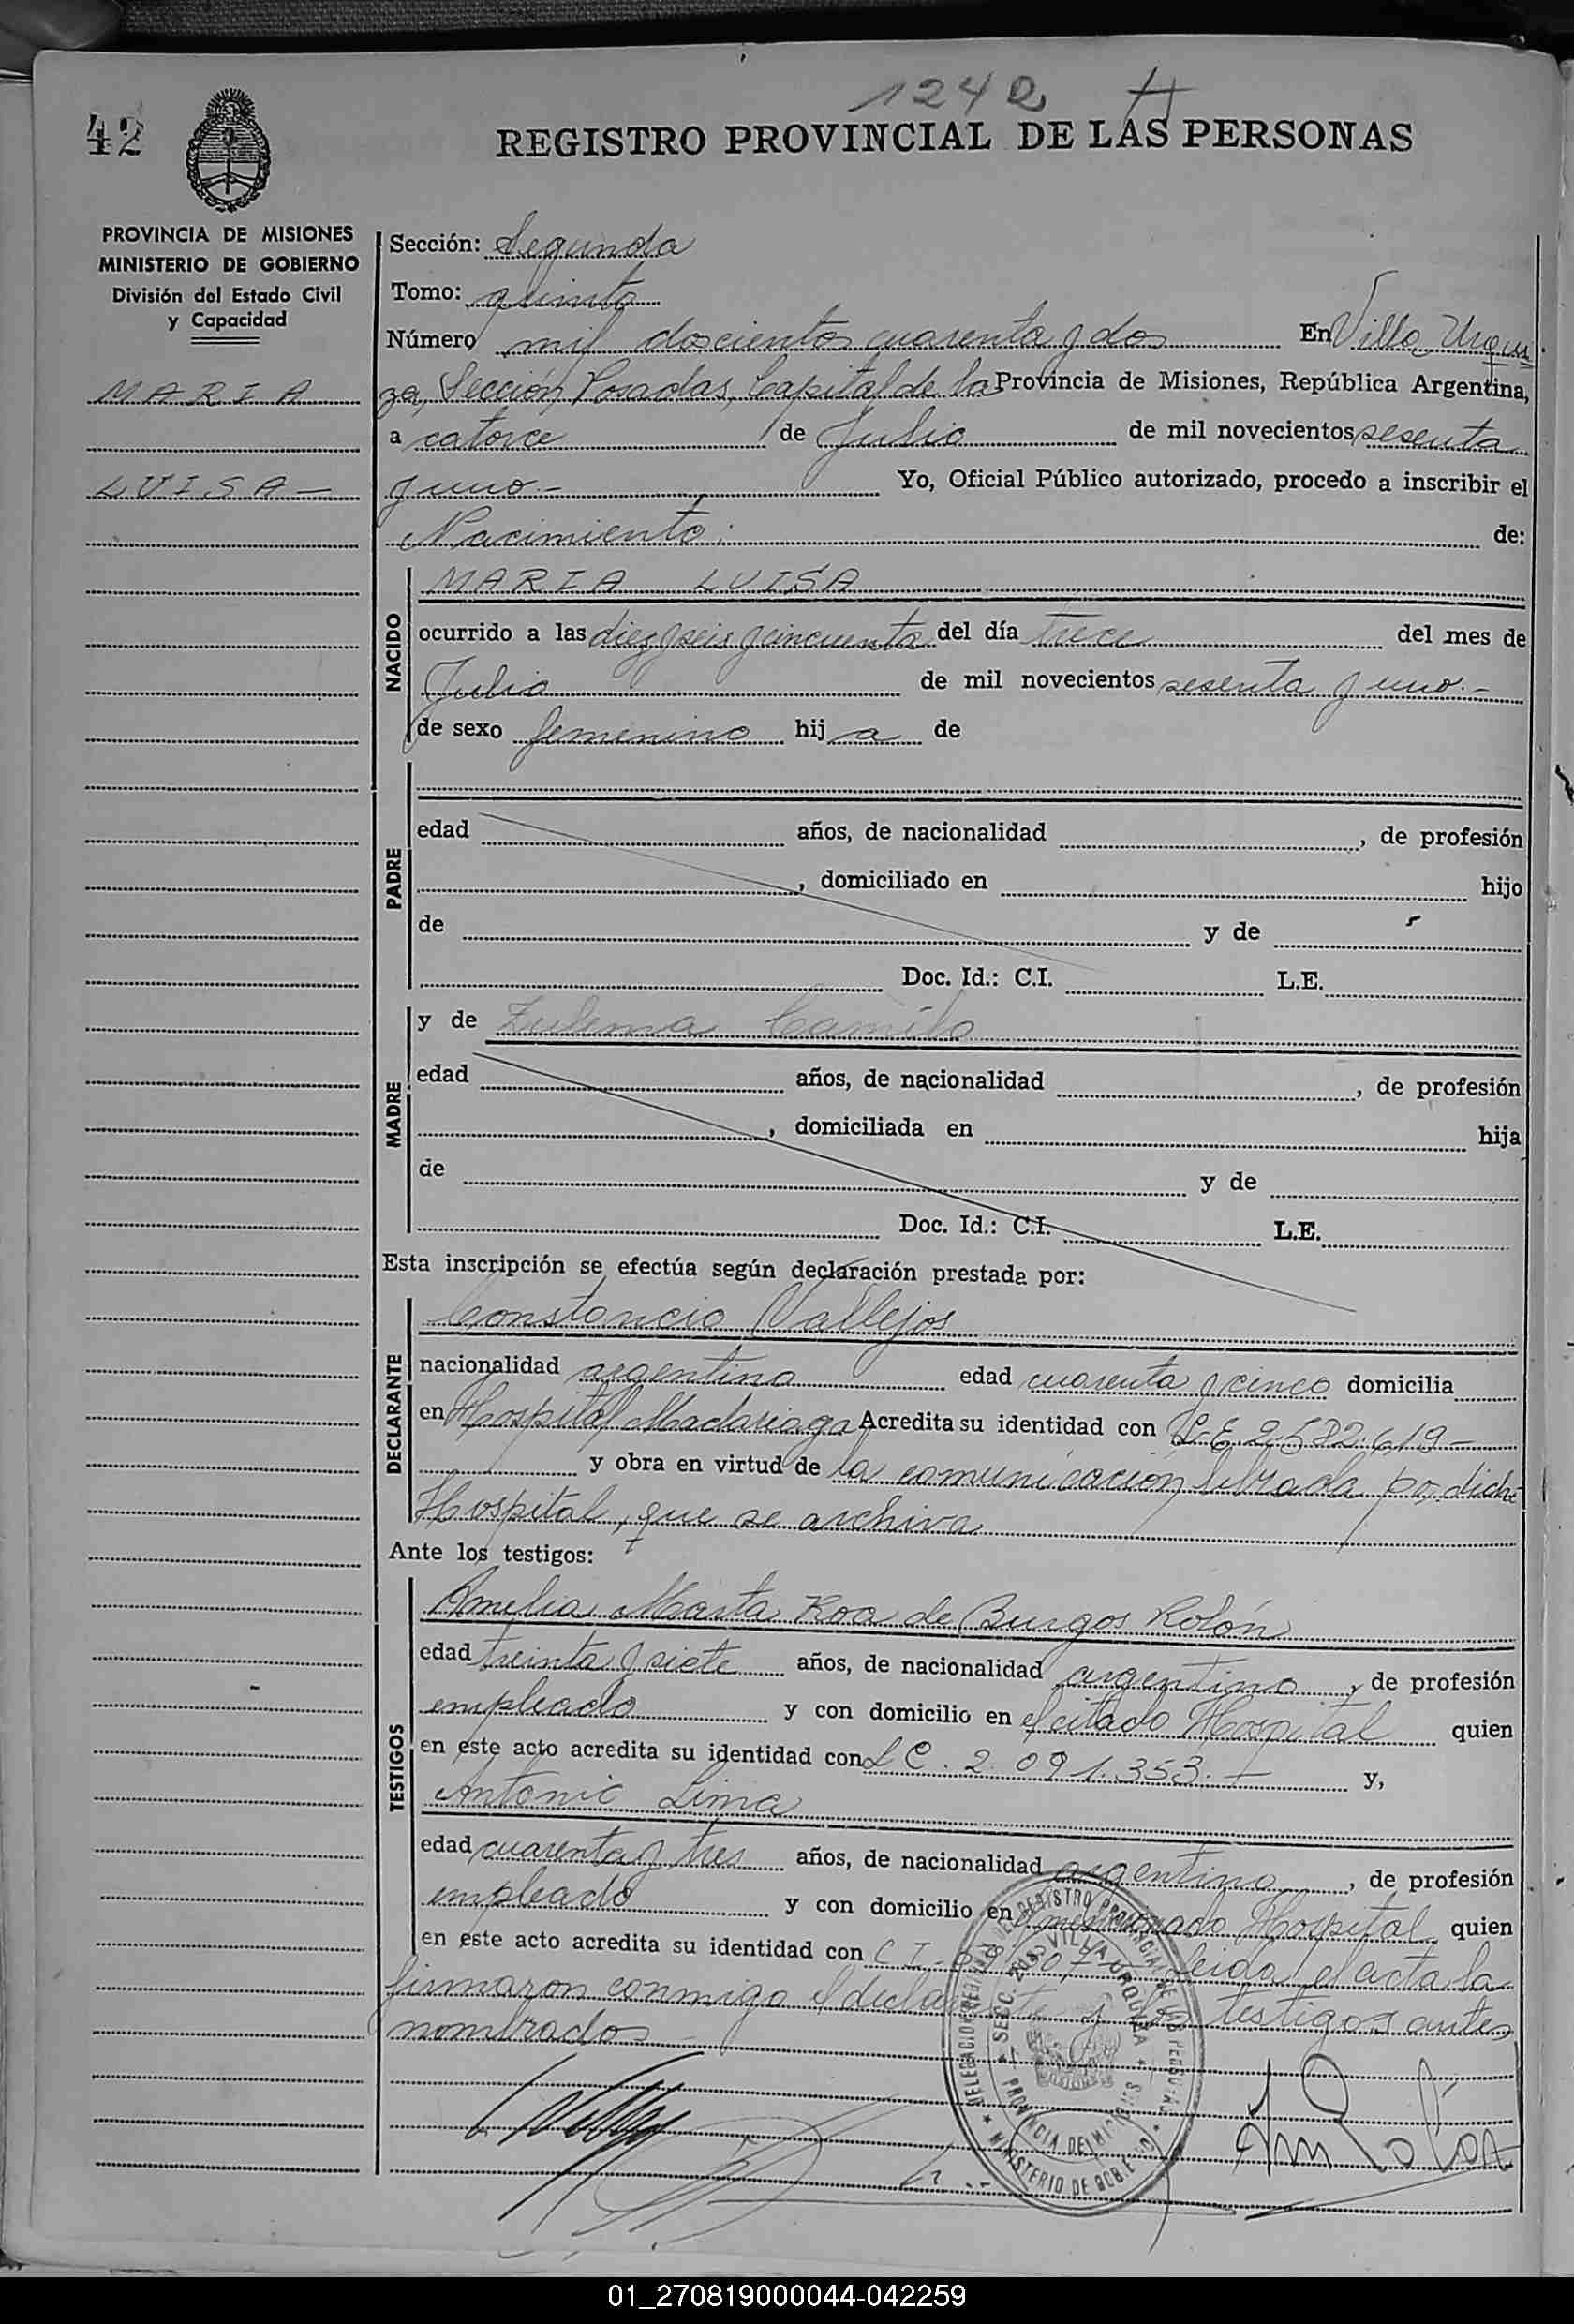 1242 H
42
REGISTRO PROVINCIAL DE LAS PERSONAS
PROVINCIA DE MISIONES
MINISTERIO DE GOBIERNO
División del Estado Civil
y Capacidad
MARIA
LUISA -
Sección: Segunda
Tomo: quinto
Número mil doscientos cuarenta y dos En Villa Urqui
za, Sección Posadas, Capital de la Provincia de Misiones, República Argentina,
a catorce de Julio de mil novecientos sesenta
y uno.- Yo, Oficial Público autorizado, procedo a inscribir el
Nacimiento: de:
NACIDO
MARIA LUISA
ocurrido a las diez y seis y cincuenta del día trece del mes de
Julio de mil novecientos sesenta y uno.-
de sexo femenino hij a de
PADRE
edad años, de nacionalidad , de profesión
, domiciliado en hijo
de y de
Doc. Id.: C.I. L.E.
MADRE
y de Zulema Camilo
edad años, de nacionalidad , de profesión
, domiciliada en hija
de y de
Doc. Id.: C.I. L.E.
Esta inscripción se efectúa según declaración prestada por:
DECLARANTE
Constancio Vallejos
nacionalidad argentino edad cuarenta y cinco domicilia
en Hospital Madariaga Acredita su identidad con L.E. 2.582.619-
y obra en virtud de la comunicación librada por dicho
Hospital, que se archiva
Ante los testigos:
TESTIGOS
Amelia Marta Roa de Burgos Rolón
edad treinta y siete años, de nacionalidad argentina, de profesión
empleado y con domicilio en el citado Hospital quien
en este acto acredita su identidad con L C. 2.091.353.- y,
Antonio Lima
edad cuarenta y tres años, de nacionalidad argentino, de profesión
empleado y con domicilio en mencionado Hospital quien
en este acto acredita su identidad con C I. Leida el acta la
firmaron conmigo el declarante y los testigos antes
nombrados
DELEGACION REGISTRO PROVINCIAL DE LAS PERSONAS
SECC. 2da. VILLA URQUIZA
PROVINCIA DE MISIONES
MINISTERIO DE GOBIERNO
01_270819000044-042259